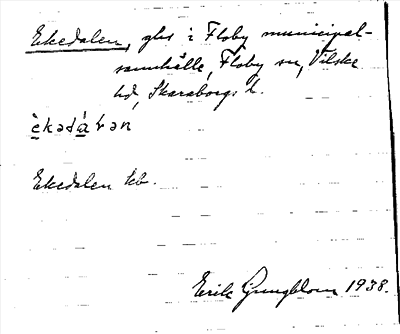 Ekedalen, glas i Floby municipal-
samhälle, Floby sn, Vilske
hd, Skaraborgs l.
Ekedalen kb.
Erik Ljungblom 1938.